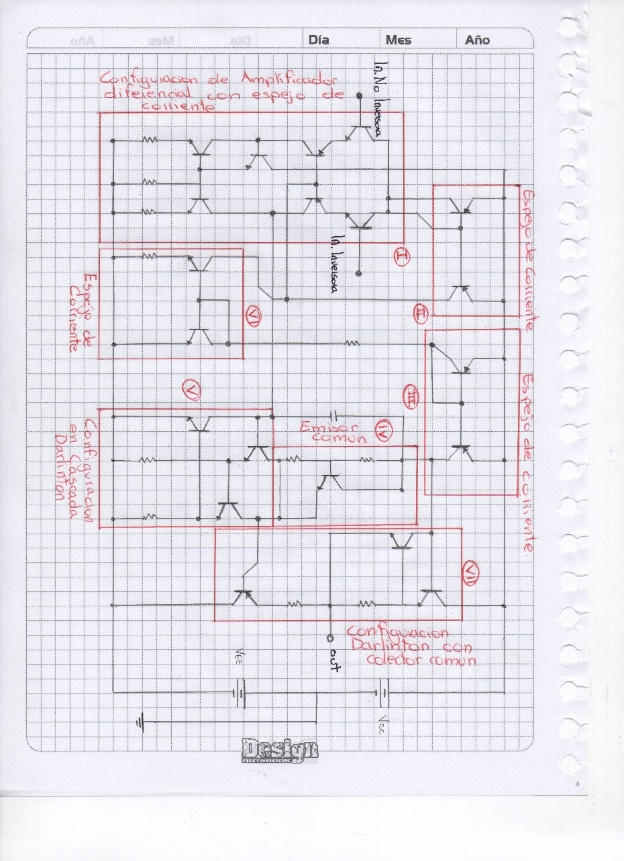 Día Mes Año
Configuracion de Amplificador
diferencial con espejo de
corriente
In. No Inversora
In. Inversora
I
Espejo de Corriente
II
Espejo de
Corriente
VI
III
Espejo de corriente.
V
Emisor
comun
IV
Configuracion
en Cascada
Darlinton
VII
Configuracion
Darlinton con
colector comun
out
VEE
Vcc
Design